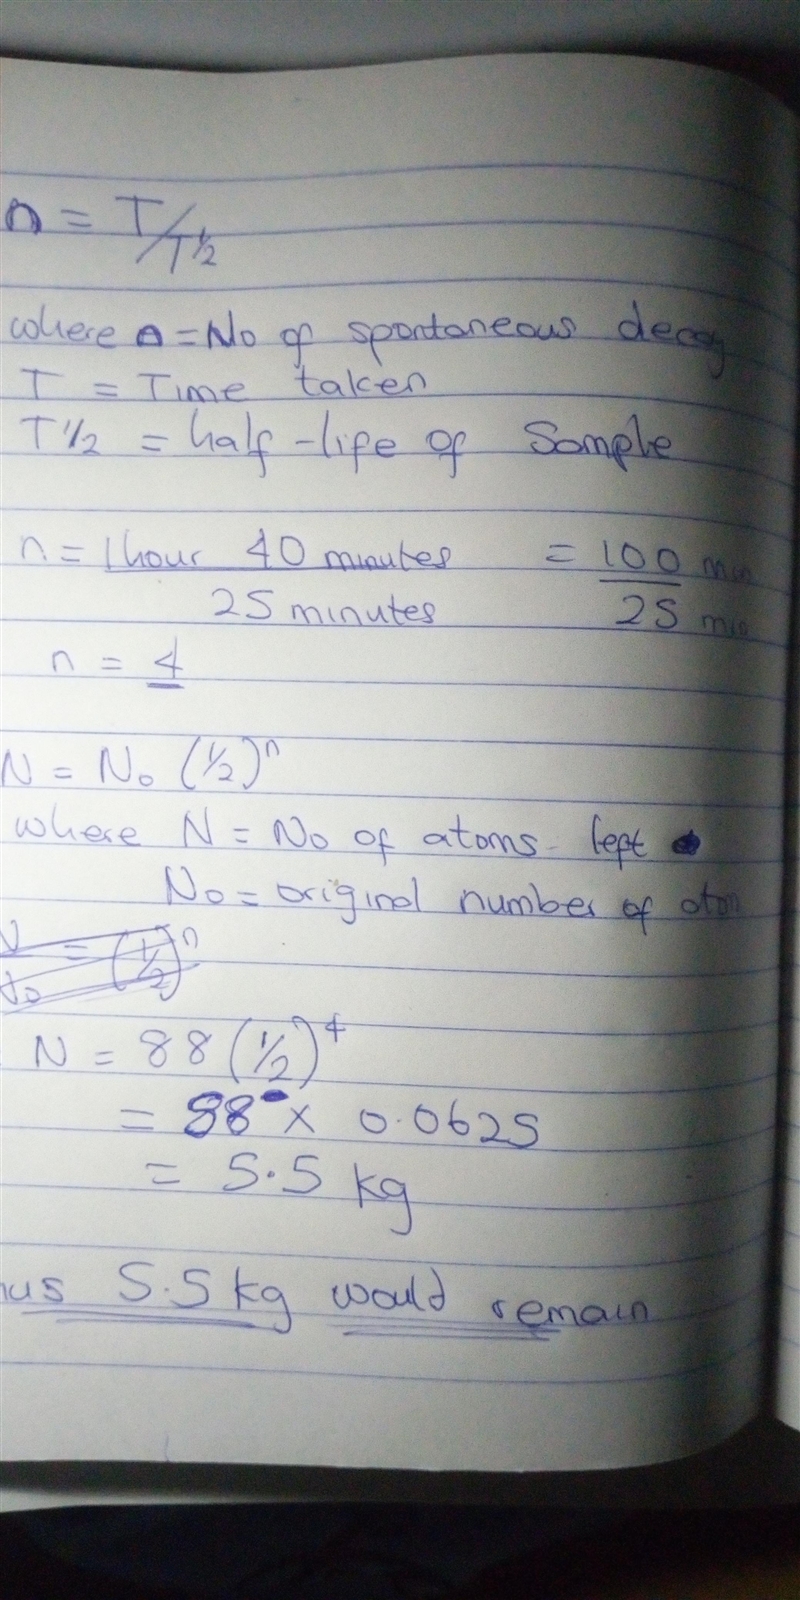 n = T/T½
where n = No of spontaneous decay
T = Time taken
T½ = half-life of Sample
n = 1 hour 40 minutes = 100 min
25 minutes 25 min
n = 4
N = No (½)ⁿ
where N = No of atoms left
No = original number of atom
= (½)ⁿ
N = 88 (½)⁴
= 88 × 0.0625
= 5.5 kg
5.5 kg would remain